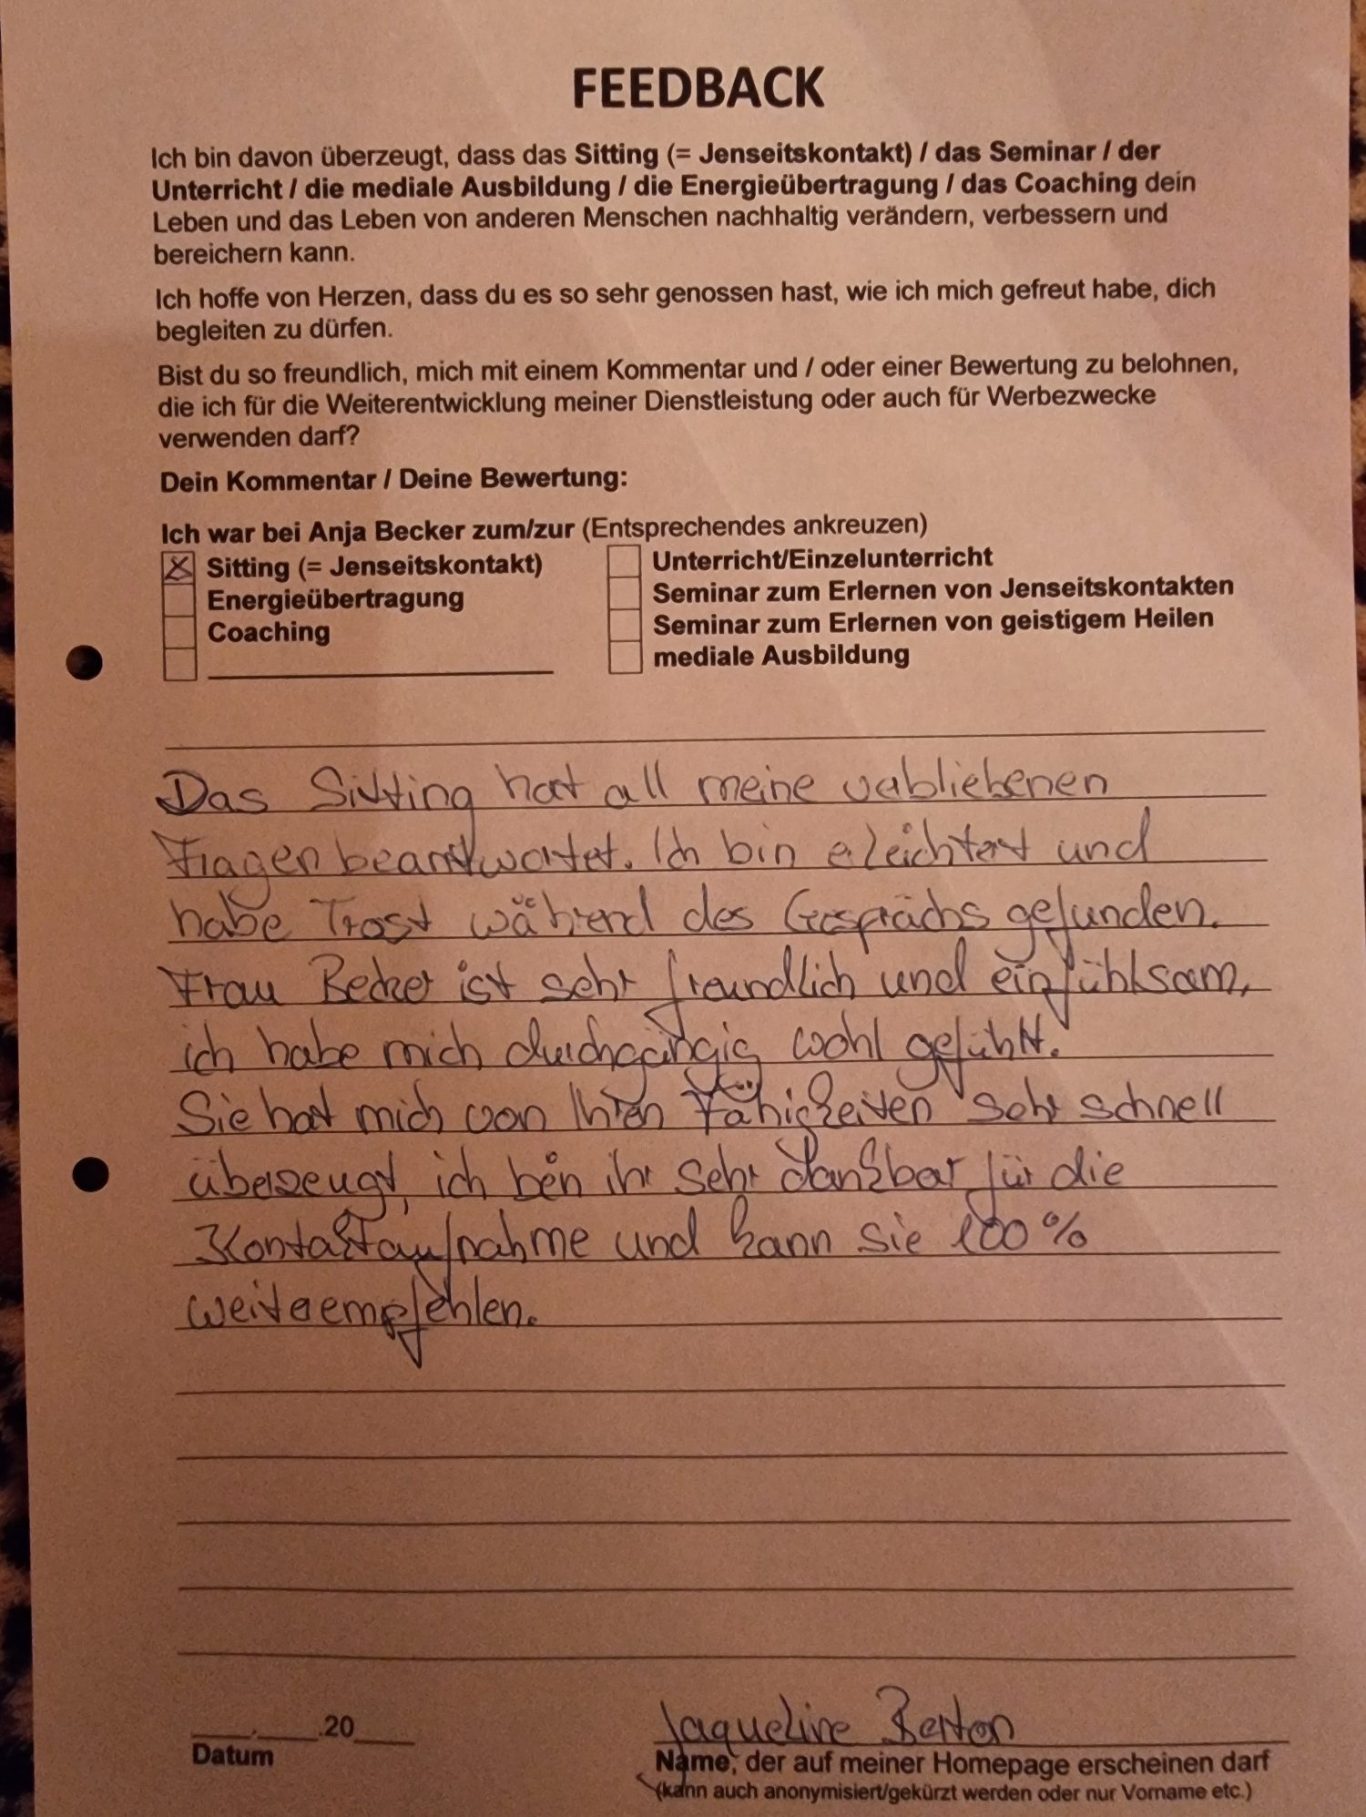 FEEDBACK
Ich bin davon überzeugt, dass das Sitting (= Jenseitskontakt) / das Seminar / der
Unterricht / die mediale Ausbildung / die Energieübertragung / das Coaching dein
Leben und das Leben von anderen Menschen nachhaltig verändern, verbessern und
bereichern kann.
Ich hoffe von Herzen, dass du es so sehr genossen hast, wie ich mich gefreut habe, dich
begleiten zu dürfen.
Bist du so freundlich, mich mit einem Kommentar und / oder einer Bewertung zu belohnen,
die ich für die Weiterentwicklung meiner Dienstleistung oder auch für Werbezwecke
verwenden darf?
Dein Kommentar / Deine Bewertung:
Ich war bei Anja Becker zum/zur (Entsprechendes ankreuzen)
X Sitting (= Jenseitskontakt)
Energieübertragung
Coaching
Unterricht/Einzelunterricht
Seminar zum Erlernen von Jenseitskontakten
Seminar zum Erlernen von geistigem Heilen
mediale Ausbildung
Das Sitting hat all meine verbliebenen
Fragen beantwortet. Ich bin erleichtert und
habe Trost während des Gesprächs gefunden.
Frau Becker ist sehr freundlich und einfühlsam,
ich habe mich durchgängig wohl gefühlt.
Sie hat mich von Ihren Fähigkeiten sehr schnell
überzeugt, ich bin ihr sehr dankbar für die
Kontaktaufnahme und kann sie 100%
weiterempfehlen.
____.____.20____
Datum
Jaqueline Berton
Name, der auf meiner Homepage erscheinen darf
(kann auch anonymisiert/gekürzt werden oder nur Vorname etc.)